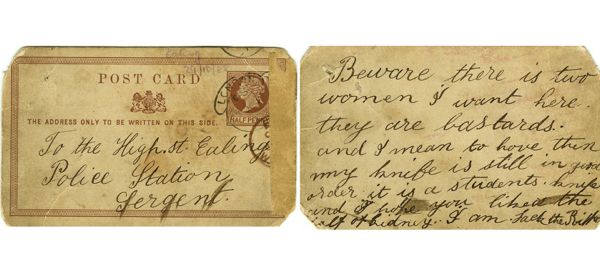 Ealing
POST CARD
HALF PENNY
THE ADDRESS ONLY TO BE WRITTEN ON THIS SIDE.
To the High.st Ealing
Police Station
Sergent.
Beware there is two
women I want here.
they are bastards.
and I mean to have them
my knife is still in good
order. it is a students. knife
and I hope you liked the
half of kidney. I am Jack the Ripper